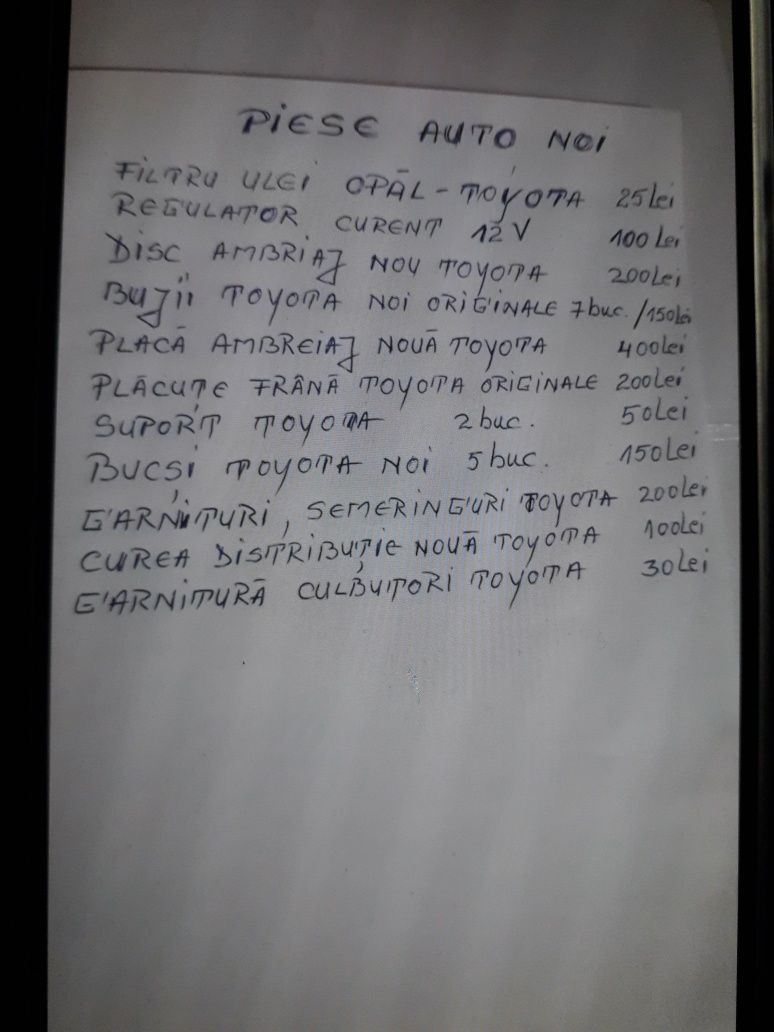 PIESE AUTO NOI
FILTRU ULEI OPĂL - TOYOTA 25 Lei
REGULATOR CURENT 12 V 100 Lei
DISC AMBRIAJ NOU TOYOTA 200 Lei
BUJII TOYOTA NOI ORIGINALE 7 buc. / 150 Lei
PLACĂ AMBREIAJ NOUĂ TOYOTA 400 Lei
PLĂCUȚE FRÂNĂ TOYOTA ORIGINALE 200 Lei
SUPORȚ TOYOTA 2 buc. 50 Lei
BUCȘI TOYOTA NOI 5 buc. 150 Lei
GARNITURI, SEMERINGURI TOYOTA 200 Lei
CUREA DISTRIBUȚIE NOUĂ TOYOTA 100 Lei
GARNITURĂ CULBUTORI TOYOTA 30 Lei